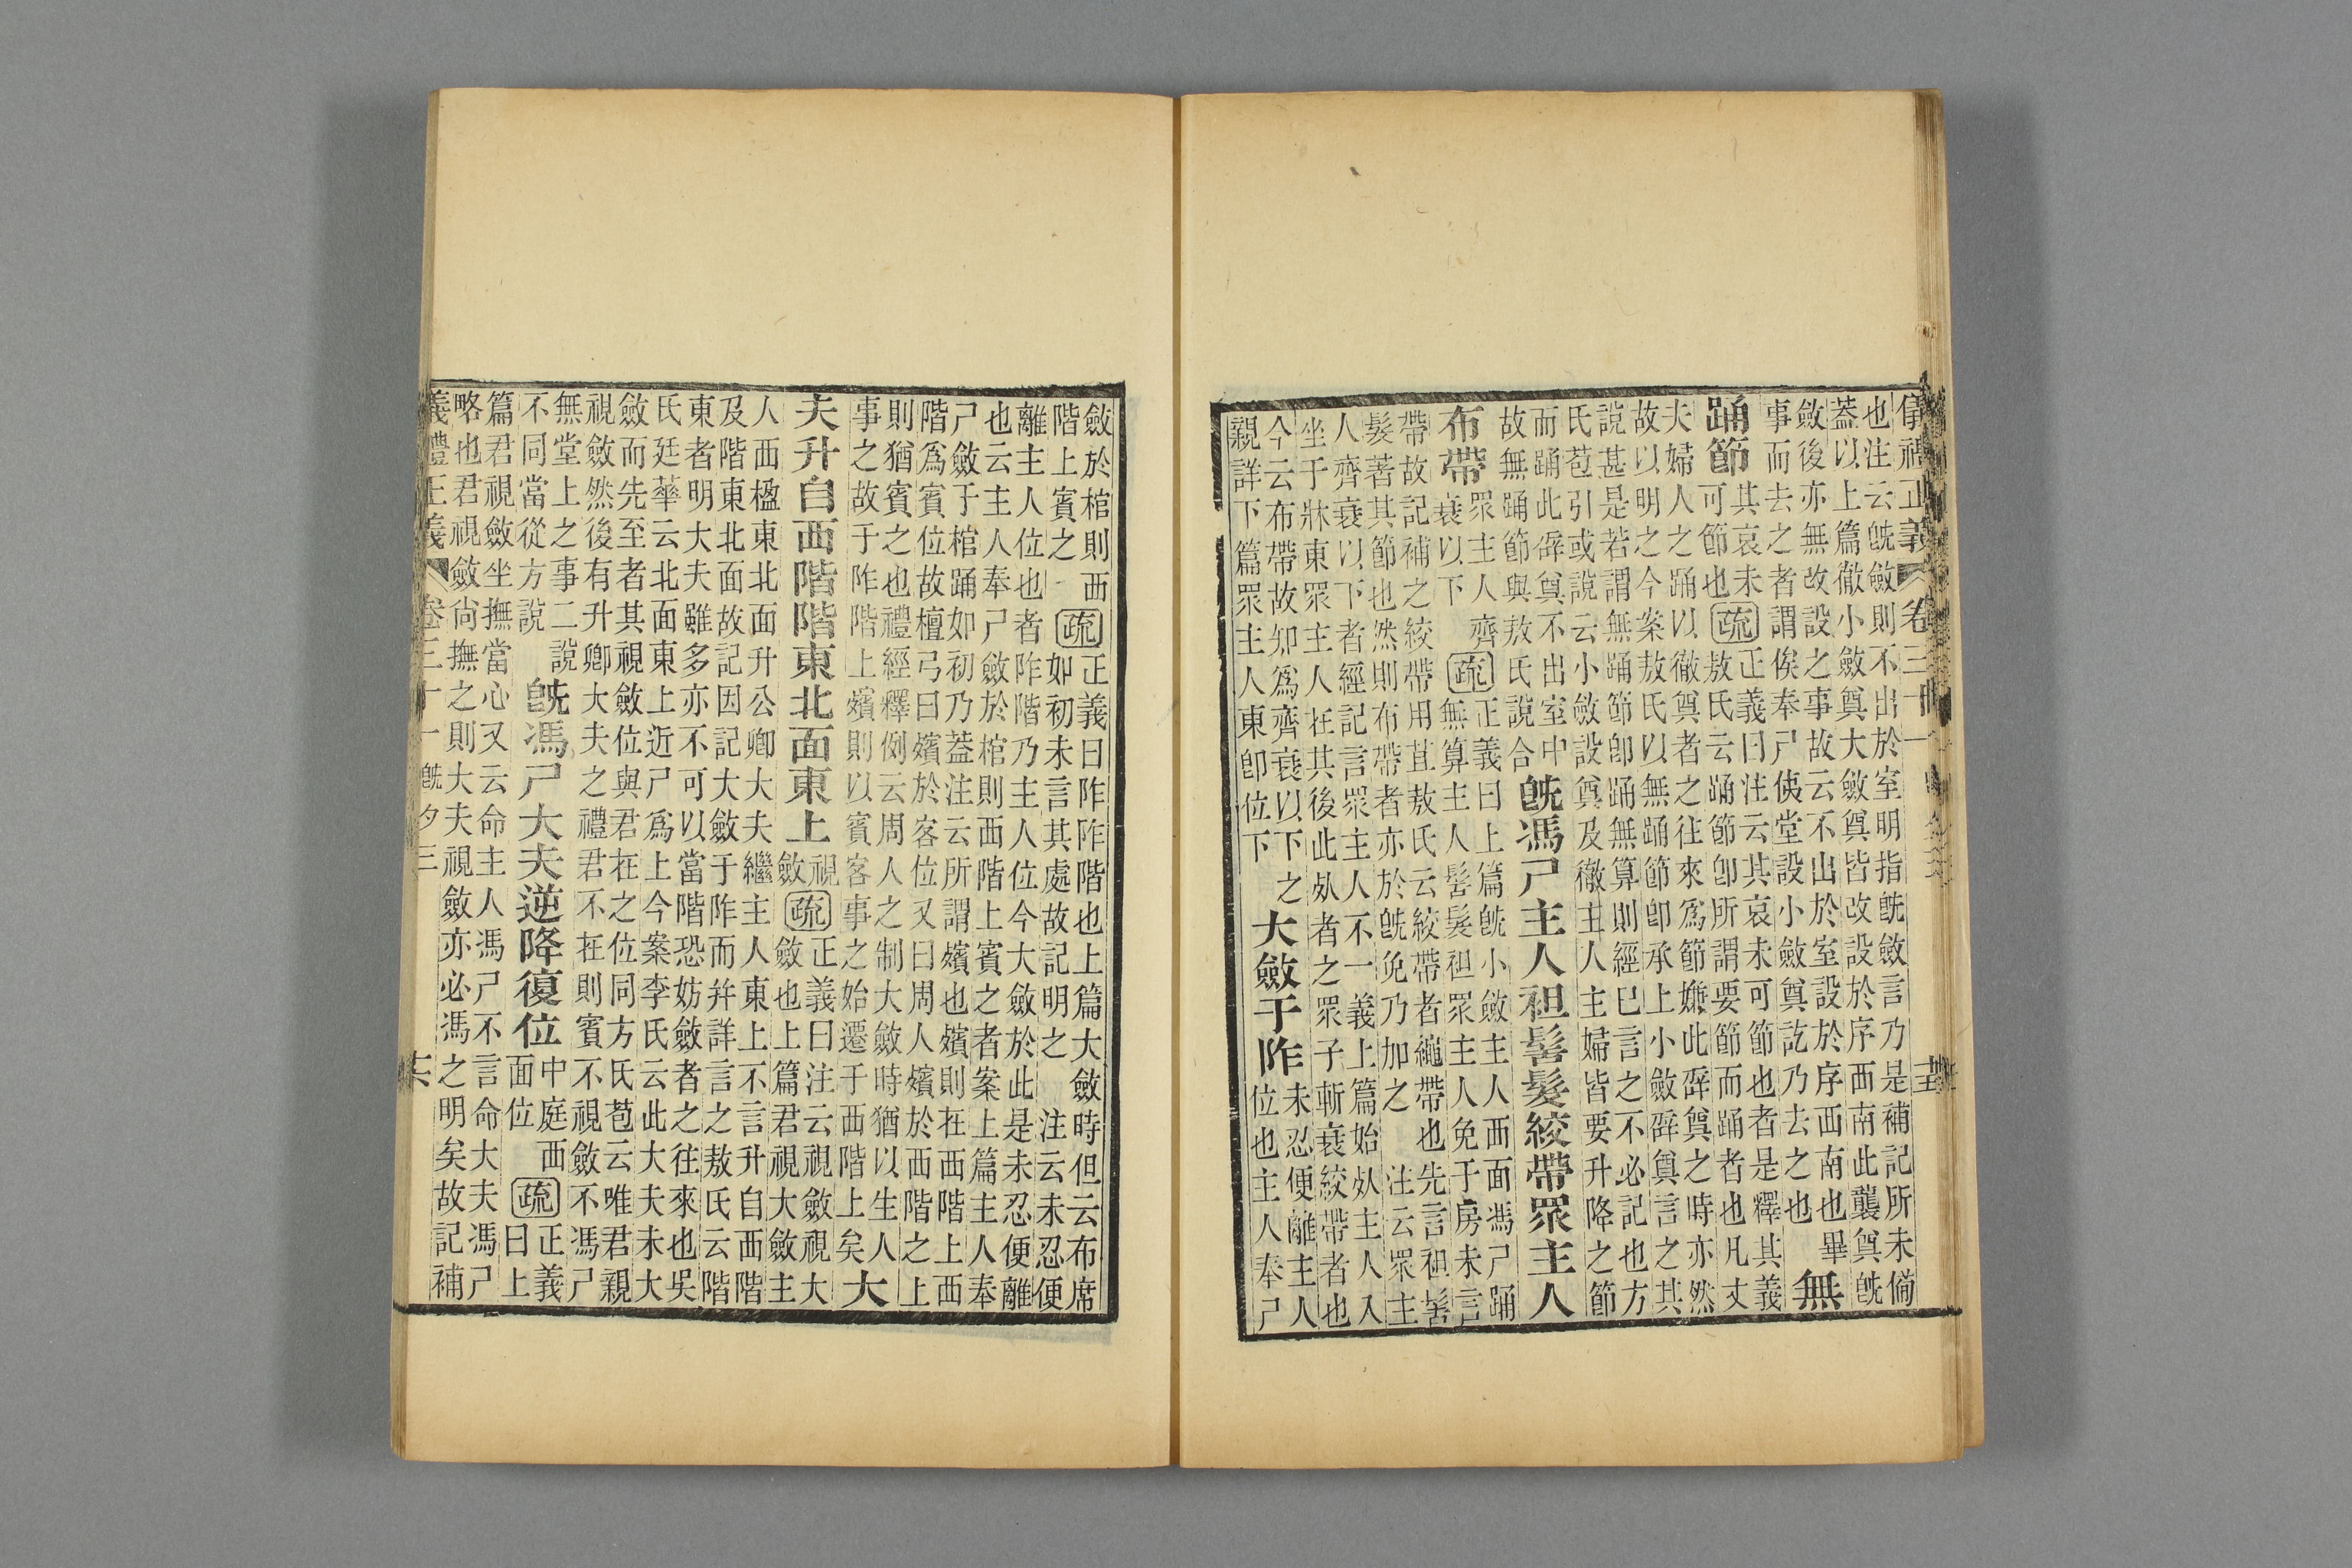 儀禮正義 卷三十一
也注云旣斂則不出於室明指旣斂言乃是補記所未備
蓋以上篇徹小斂奠大斂奠皆改設於序西南此襲奠旣
斂後亦無改設之事故云不出於室設於序西南也 畢
事而去之者謂俟奉尸使堂設小斂奠訖乃去之也
無
踊節
其哀未
可節也
疏
正義曰注云其哀未可節也者是釋其義
敖氏云踊節卽所謂要節而踊者也凡丈
夫婦人之踊以徹奠者之往來爲節嫌此辟奠之時亦然
故以明之今案敖氏以無踊節卽承上小斂辟奠言之其
說甚是若謂無踊節卽踊無算則經已言之不必記也方
氏苞引或說云小斂設奠及徹丑人主婦皆要升降之節
而踊此辟奠不出室中
故無踊節與敖氏說合
旣馮尸主人袒髻髮絞帶眾主人
布帶
眾主人齊
衰以下
疏
正義曰上篇旣小斂主人西面馮尸踊
無算主人髻髮袒眾主人免于房未言
帶故記補之絞帶用苴敖氏云絞帶者繩帶也先言袒髻
髮著其節也然則布帶者亦於旣免乃加之 注云眾主
人齊衰以下者經記言眾主人不一義上篇始死主人入
坐于牀東眾主人在其後此死者之眾子斬衰絞帶者也
今云布帶故知爲齊衰以下之
親詳下篇眾主人東卽位下
大斂于阼
未忍便離主人
位也主人奉尸
斂於棺則西
階上賓之
疏
正義曰阼阼階也上篇大斂時但云布席
如初未言其處故記明之 注云未忍便
離主人位也者阼階乃主人位今大斂於此是未忍便離
也云主人奉尸斂於棺則西階上賓之者案上篇主人奉
尸斂于棺踊如初乃蓋注云所謂殯也殯則在西階上西
階爲賓位故檀弓曰殯於客位又曰周人殯於西階之上
則猶賓之也禮經釋例云周人之制大斂時猶以生人
事之故于阼階上殯則以賓客事之始遷于西階上矣
大
夫升自西階階東北面東上
視
斂
疏
正義曰注云視斂視大
斂也上篇君視大斂主
人西楹東北面升公卿大夫繼主人東上不言升自西階
及階東北面故記因記大斂于阼而幷詳言之敖氏云階
東者明大夫雖多亦不可以當階恐妨斂者之往來也吳
氏廷華云北面東上近尸爲上今案李氏云此大夫未大
斂而先至者其視斂位與君在之位同方氏苞云唯君親
視斂然後有升卿大夫之禮君不在則賓不視斂不馮尸
無堂上之事二說
不同當從方說
旣馮尸大夫逆降復位
中庭西
面位
疏
正義
曰上
篇君視斂坐撫當心又云命主人馮尸不言命大夫馮尸
略也君視斂尚撫之則大夫視斂亦必馮之明矣故記補
義禮正義 卷三十一 旣夕三